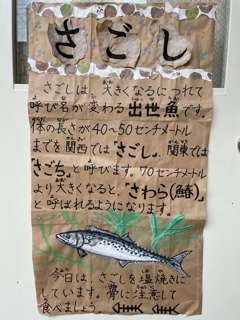 さごし
さごしは、大きくなるにつれて
呼び名が変わる出世魚です。
体の長さが40〜50センチメートル
までを関西では「さごし」、関東では
「さごち」と呼びます。70センチメートル
より大きくなると、「さわら(鰆)」
と呼ばれるようになります。
今日は、さごしを塩焼きに
しています。骨に注意して
食べましょう。